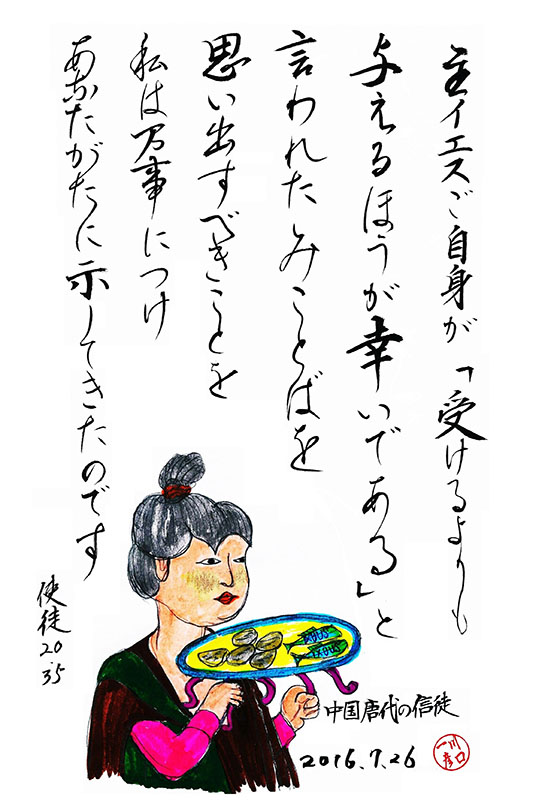 主イエスご自身が「受けるよりも
与えるほうが幸いである」と
言われたみことばを
思い出すべきことを
私は万事につけ
あなたがたに示してきたのです
使徒20.35
中国唐代の信徒
2016.7.26